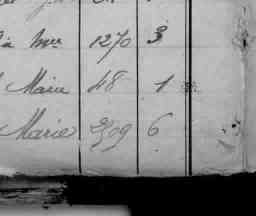 à Mme 1270 3
Marie 48 1
Marie 2509 6